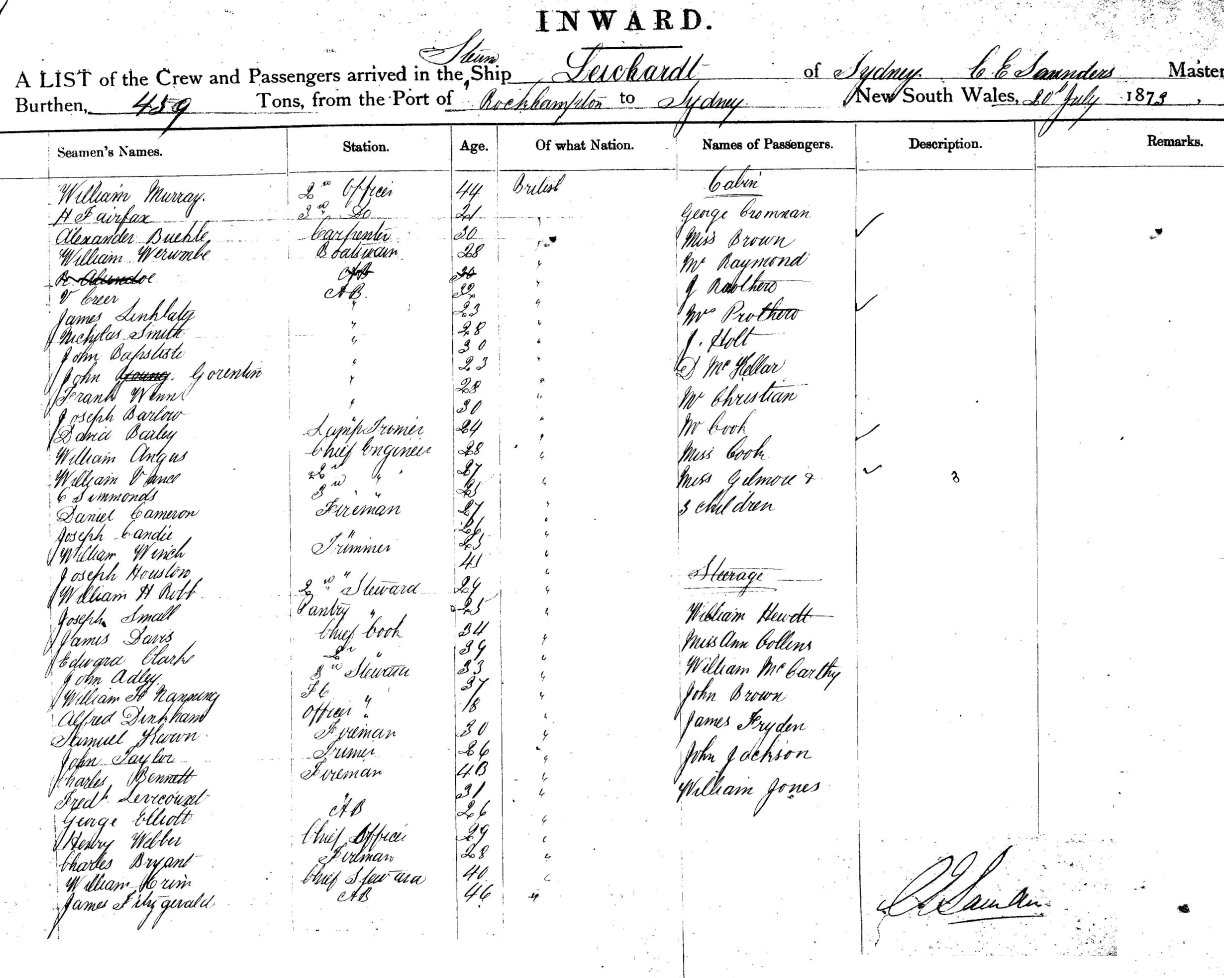 INWARD.
Steam
A LIST of the Crew and Passengers arrived in the Ship Leichardt of Sydney. C E Saunders Master
Burthen, 459 Tons, from the Port of Rockhampton to Sydney New South Wales, 20th July 1873,
Seamen's Names. Station. Age. Of what Nation. Names of Passengers. Description. Remarks.
William Murray. 2nd Officer 44 British
H Fairfax 3rd Do 21 "
Alexander Buehle Carpenter 30 "
William Werombe Boatswain 28 "
AB 30 "
V Creer AB. 32 "
James Linklater " 23 "
Nicholas Smith " 28 "
John Baptiste 30 "
John Young. Gorentin " 23 "
Frank Winn " 28 "
Joseph Barlow " 30 "
David Bailey Lamp Trimer 24 "
William Angus Chief Engineer 28 "
William Vance 2nd " 27 "
C Simmonds 3rd "
Daniel Cameron Fireman 27 "
Joseph Candie " 26 "
William Winch Trimmer "
Joseph Houston " 41 "
William H Robb 2nd Steward 24 "
Joseph Small Pantry " 25 "
James Davis Chief Cook 34 "
Edward Clarke 2nd " 39 "
John Adley 3rd Steward 33 "
William H Nanning F C " 37 "
Alfred Dinkham Officer " 18 "
Samuel Kwown Fireman 30 "
John Taylor Trimer 26 "
Charles Bennett Fireman "
Fredk Levicount " 31 "
George Elliott AB 26 "
Henry Webber Chief Officer 29 "
Charles Bryant Fireman 28 "
William Crim Chief Steward 40 "
James Fitzgerald AB 46 "
Cabin
George Cromnan
Miss Brown
Mr Raymond
J Rawthero
Mrs Prothero
J. Holt
D McKellar
Mr Christian
Mr Cook
Miss Cook
Miss Gilmore & 3
3 children
Steerage
William Hewdt
Miss Ann Collins
William McCarthy
John Brown
James Fryden
John Jackson
William Jones